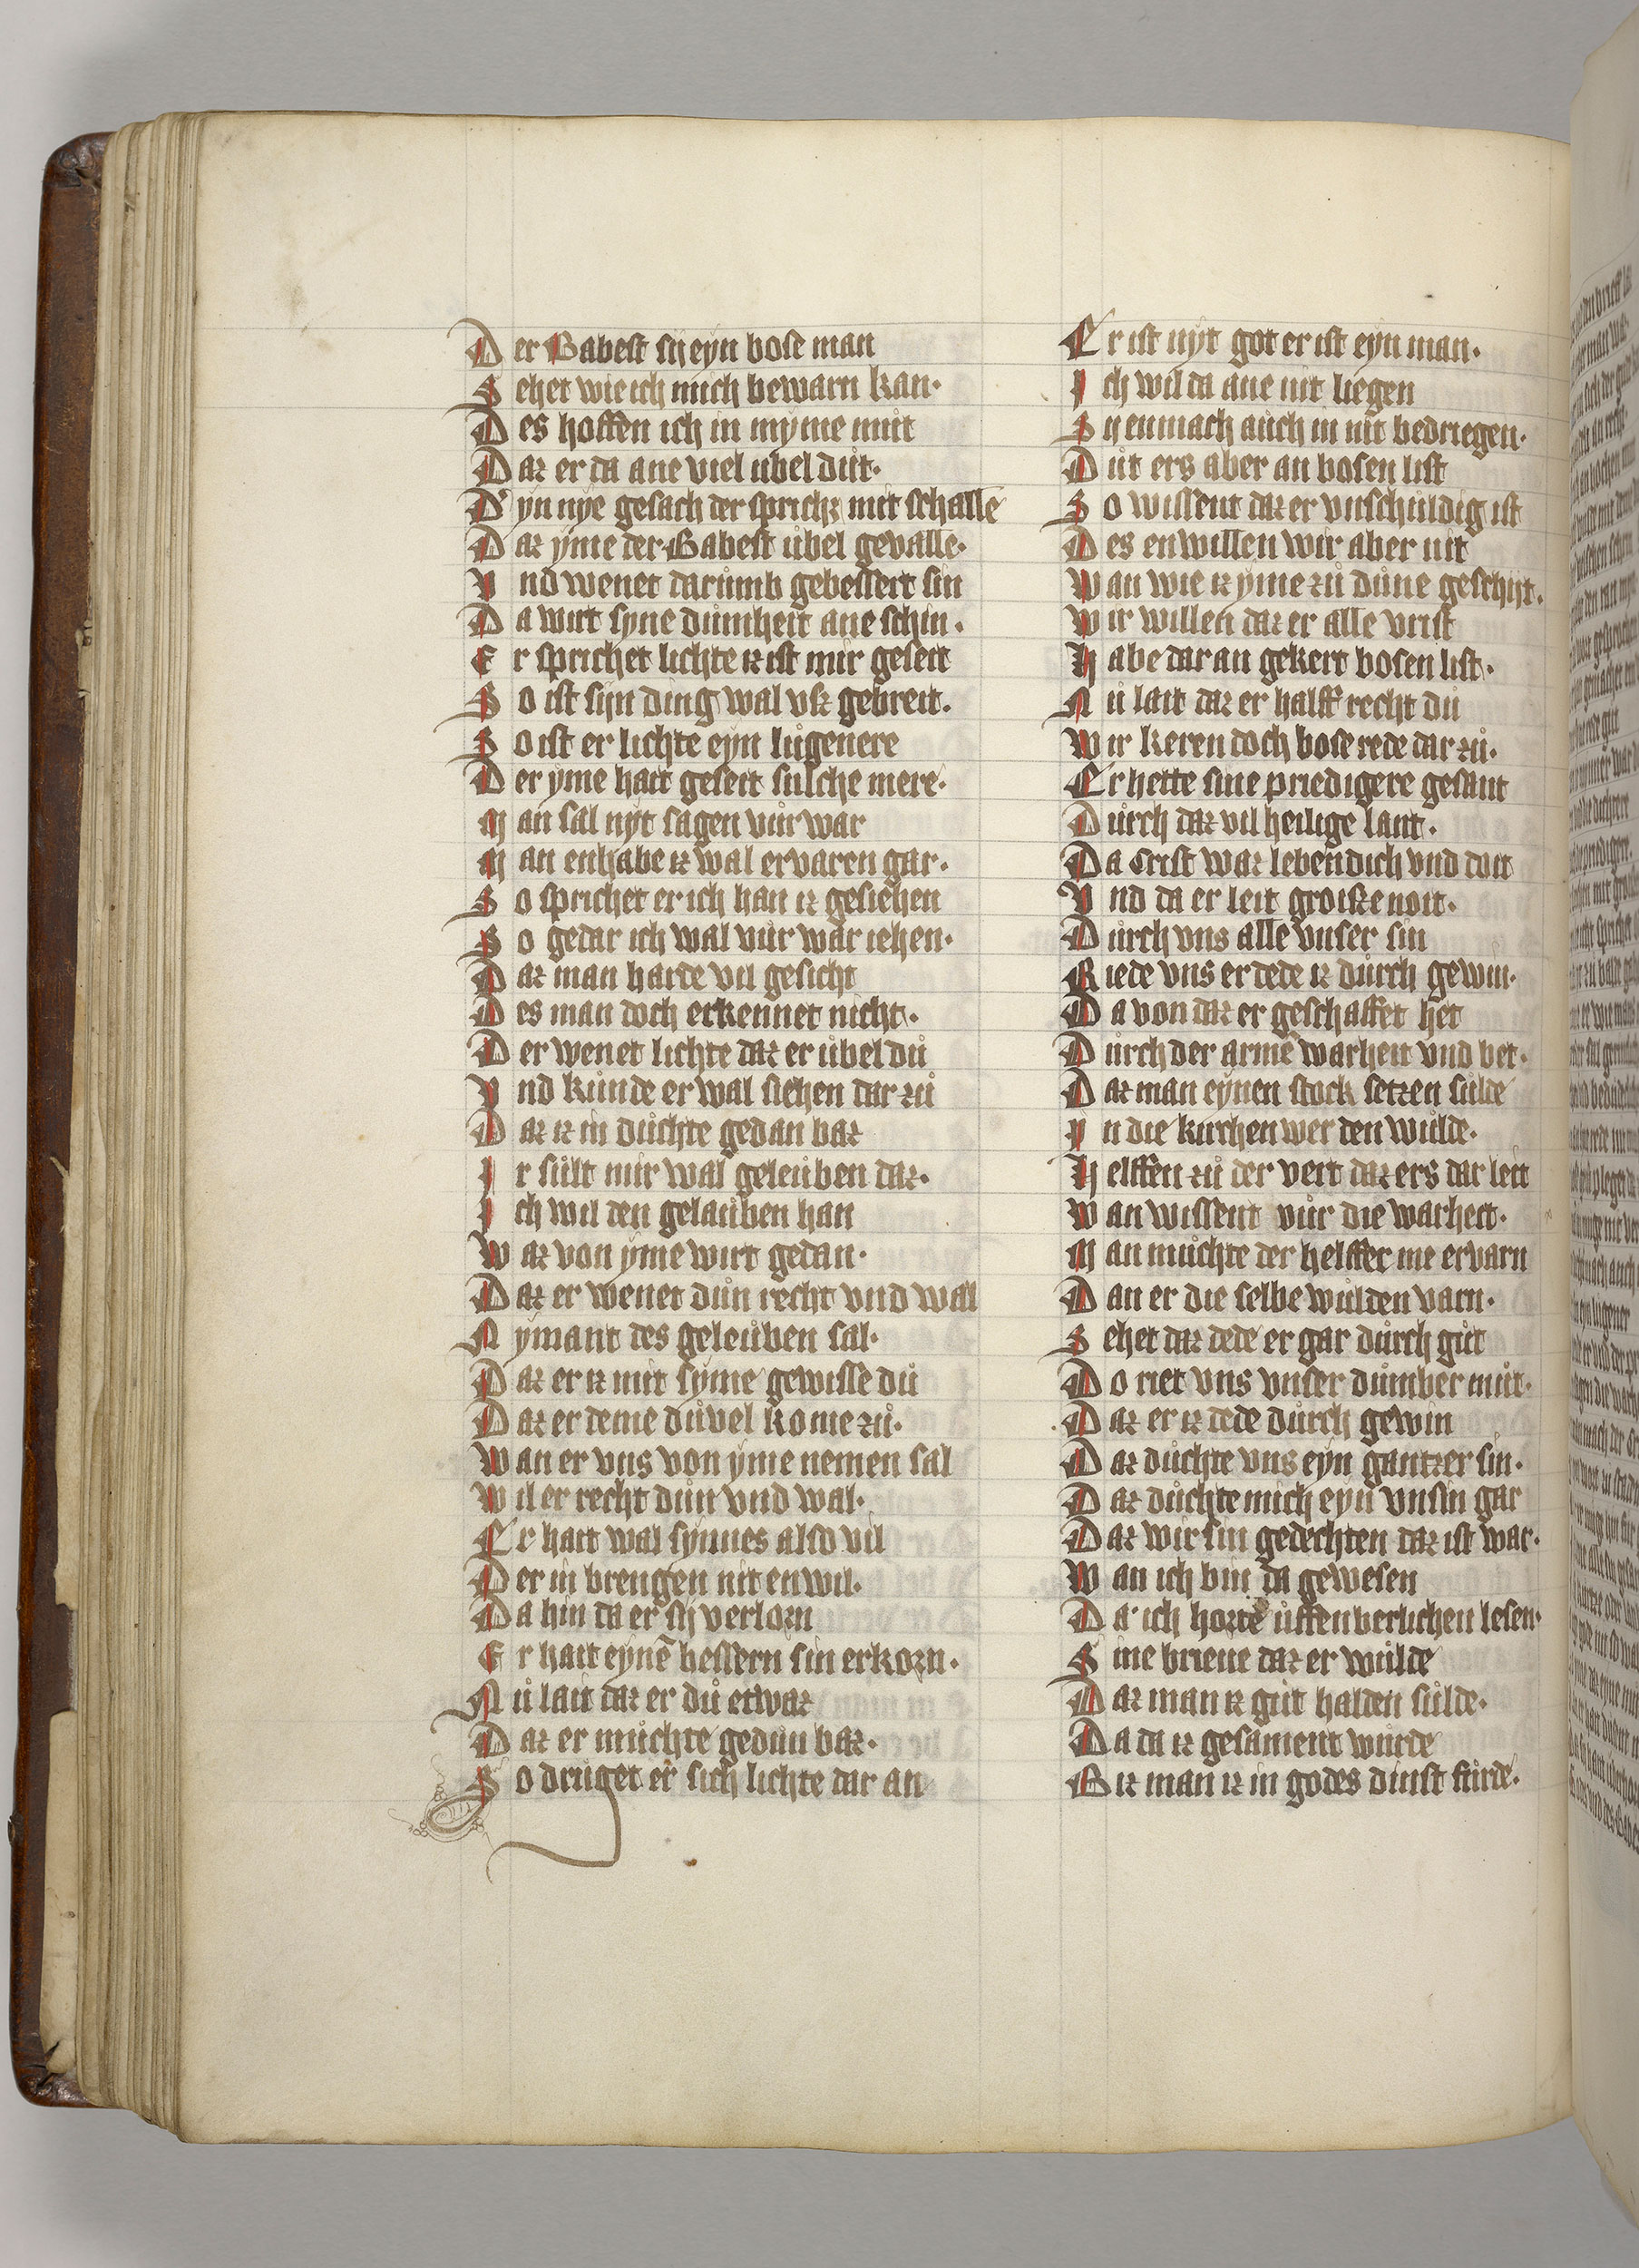 Der Babest sij eyn bose man
Sehet wie ich mich bewarn kan·
Des hoffen ich in myme muͦt
Daz er da ane viel ubel duͦt·
Dyn nye gesach der spricht mit schalle
Daz yme der Babest ubel gevalle·
Vnd wenet darumb gebessert sin
Da wirt syne dumheit ane schin·
Er sprichet lichte iz ist mir geseit
So ist sijn ding wal vsz gebreit·
So ist er lichte eyn lugenere
Der yme hait geseit sulche mere·
Man sal nyt sagen vur war
Man enhabe iz wal ervaren gar·
So sprichet er ich han iz gesiehen
So gedar ich wal vur war iehen·
Daz man harte vil gesicht
Des man doch erkennet nicht·
Der wenet lichte daz er ubel duͦ
Vnd kunde er wal siehen dar zuͦ
Daz iz in duchte gedan baz
Ir sult mir wal geleuben daz·
Ich wil den gelauben han
Waz von yme wirt gedan·
Daz er wenet duͦn recht vnd wal
Nymant des geleuben sal·
Daz er iz mit syme gewisse duͦ
Daz er deme duvel kome zuͦ·
Wan er vns von yme nemen sal
Wil er recht duͦn vnd wal·
Er hait wal synnes also vil
Der in brengen nit enwil·
Da hin da er sij verlorn
Er hait eynē bessern sin erkorn·
Nu lait daz er duͦ etwaz
Daz er muchte gedun baz·
So druget er sich lichte dar an
Er ist nyt got er ist eyn man·
Ich wil da ane nit liegen
Sy enmach auch in nit bedriegen·
Duͦt ers aber an bosen list
So wissent daz er vnschuldig ist
Des enwillen wir aber nit
Wan wie iz yme zuͦ duͦne geschiet·
Wir willen daz er alle vrist
Habe dar an gekert bosen list·
Nu lait daz er halff recht duͦ
Wir keren doch bose rede dar zuͦ·
Er hette sine priedigere gesant
Durch daz vil heilige lant·
Da Crist waz lebendich vnd doit
Vnd da er leit groisze noit·
Durch vns alle vnser sin
Riede vns er dede iz durch gewin·
Da von daz er geschaffet het
Durch der armē warheit vnd bet·
Daz man eynen stock setzen sulde
In die kirchen wer den wulde·
Helffen zuͦ der vert daz ers dar leit
Wan wissent vur die warheit·
Man muchte der helffer me ervarn
Dan er die selbe wulden varn·
Sehet daz dede er gar durch guͦt
Do riet vns vnser dumber muͦt·
Daz er iz dede durch gewin
Daz duchte vns eyn gantzer sin·
Daz duchte mich eyn vnsin gar
Daz wir sin gedechten daz ist war·
Wan ich bin da gewesen
Da ich horte uffenberlichen lesen·
Sine brieue daz er wulde
Daz man iz guͦt halden sulde·
Da da iz gesament wurde
Biz man iz in godes dinst furde·